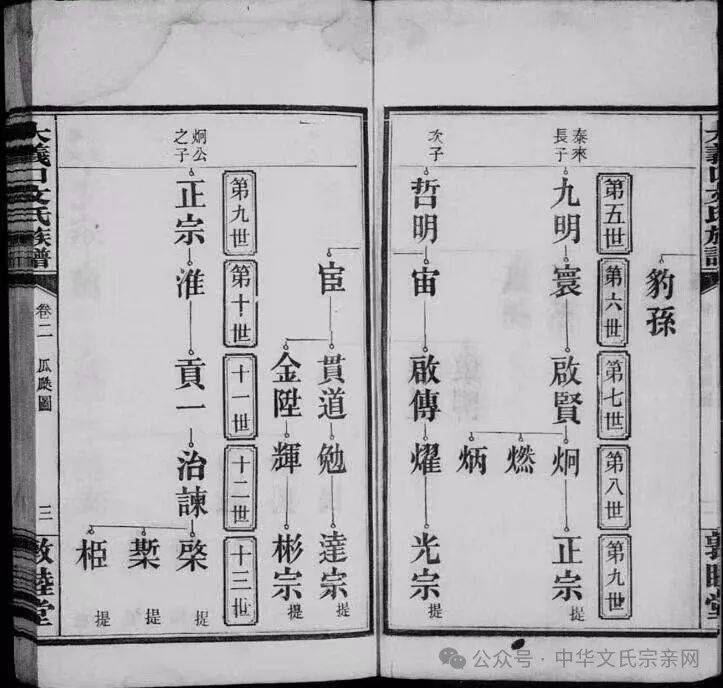 大義山文氏族譜
敦睦堂
豹孫
第五世
第六世
第七世
第八世
第九世
泰來
長子
九明
寰
啟賢
炯
正宗
提
燃
炳
次子
哲明
宙
啟傳
燿
光宗
提
宦
貫道
勉
達宗
提
金陞
輝
彬宗
提
第九世
第十世
十一世
十二世
十三世
炯公
之子
正宗
淮
貢一
治諫
棨
提
槧
提
提
大義山文氏族譜
卷二
瓜瓞圖
三
敦睦堂
公众号·中华文氏宗亲网